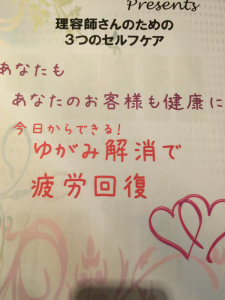 Presents
理容師さんのための
3つのセルフケア
あなたも
あなたのお客様も健康に
今日からできる!
ゆがみ解消で
疲労回復